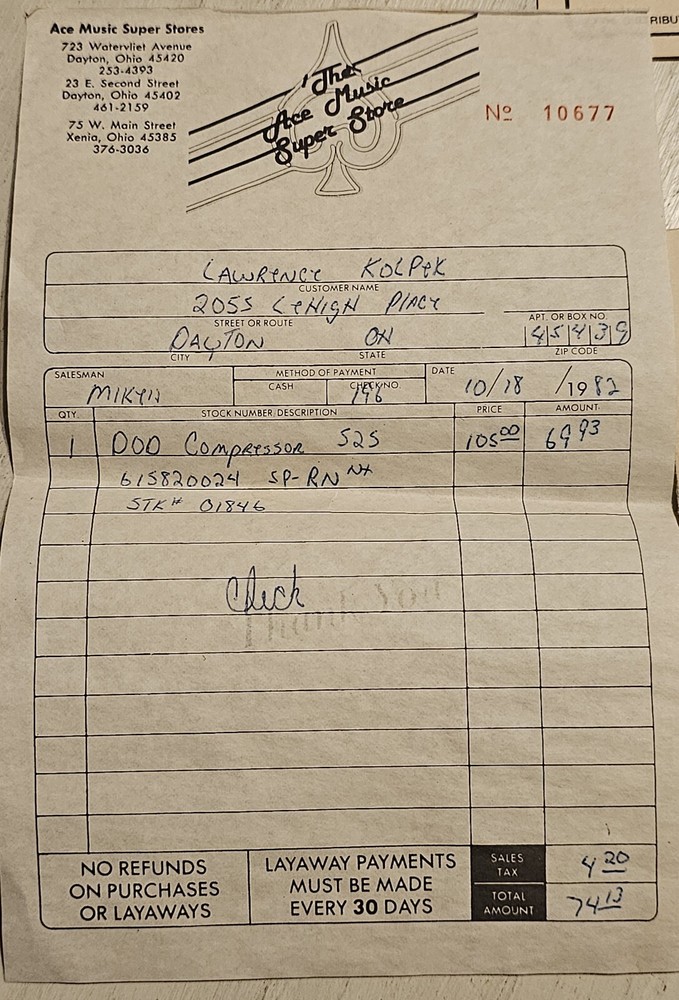 Ace Music Super Stores
723 Watervliet Avenue
Dayton, Ohio 45420
253-4393
23 E. Second Street
Dayton, Ohio 45402
461-2159
75 W. Main Street
Xenia, Ohio 45385
376-3036
The
Ace Music
Super Store
RIBU
No 10677
LAWRENCE KOLPEK
CUSTOMER NAME
2055 LEHIGH PLACE
STREET OR ROUTE APT. OR BOX NO.
DAYTON OH 45439
CITY STATE ZIP CODE
SALESMAN METHOD OF PAYMENT DATE
CASH CHECK NO
196 10/18 /1982
QTY. STOCK NUMBER/DESCRIPTION PRICE AMOUNT
1 DOD Compressor 525 105 00 69 93
615820024 SP-RN
STK# 01846
Check
Thank You
NO REFUNDS
ON PURCHASES
OR LAYAWAYS
LAYAWAY PAYMENTS
MUST BE MADE
EVERY 30 DAYS
SALES
TAX
4 20
TOTAL
AMOUNT
74 13